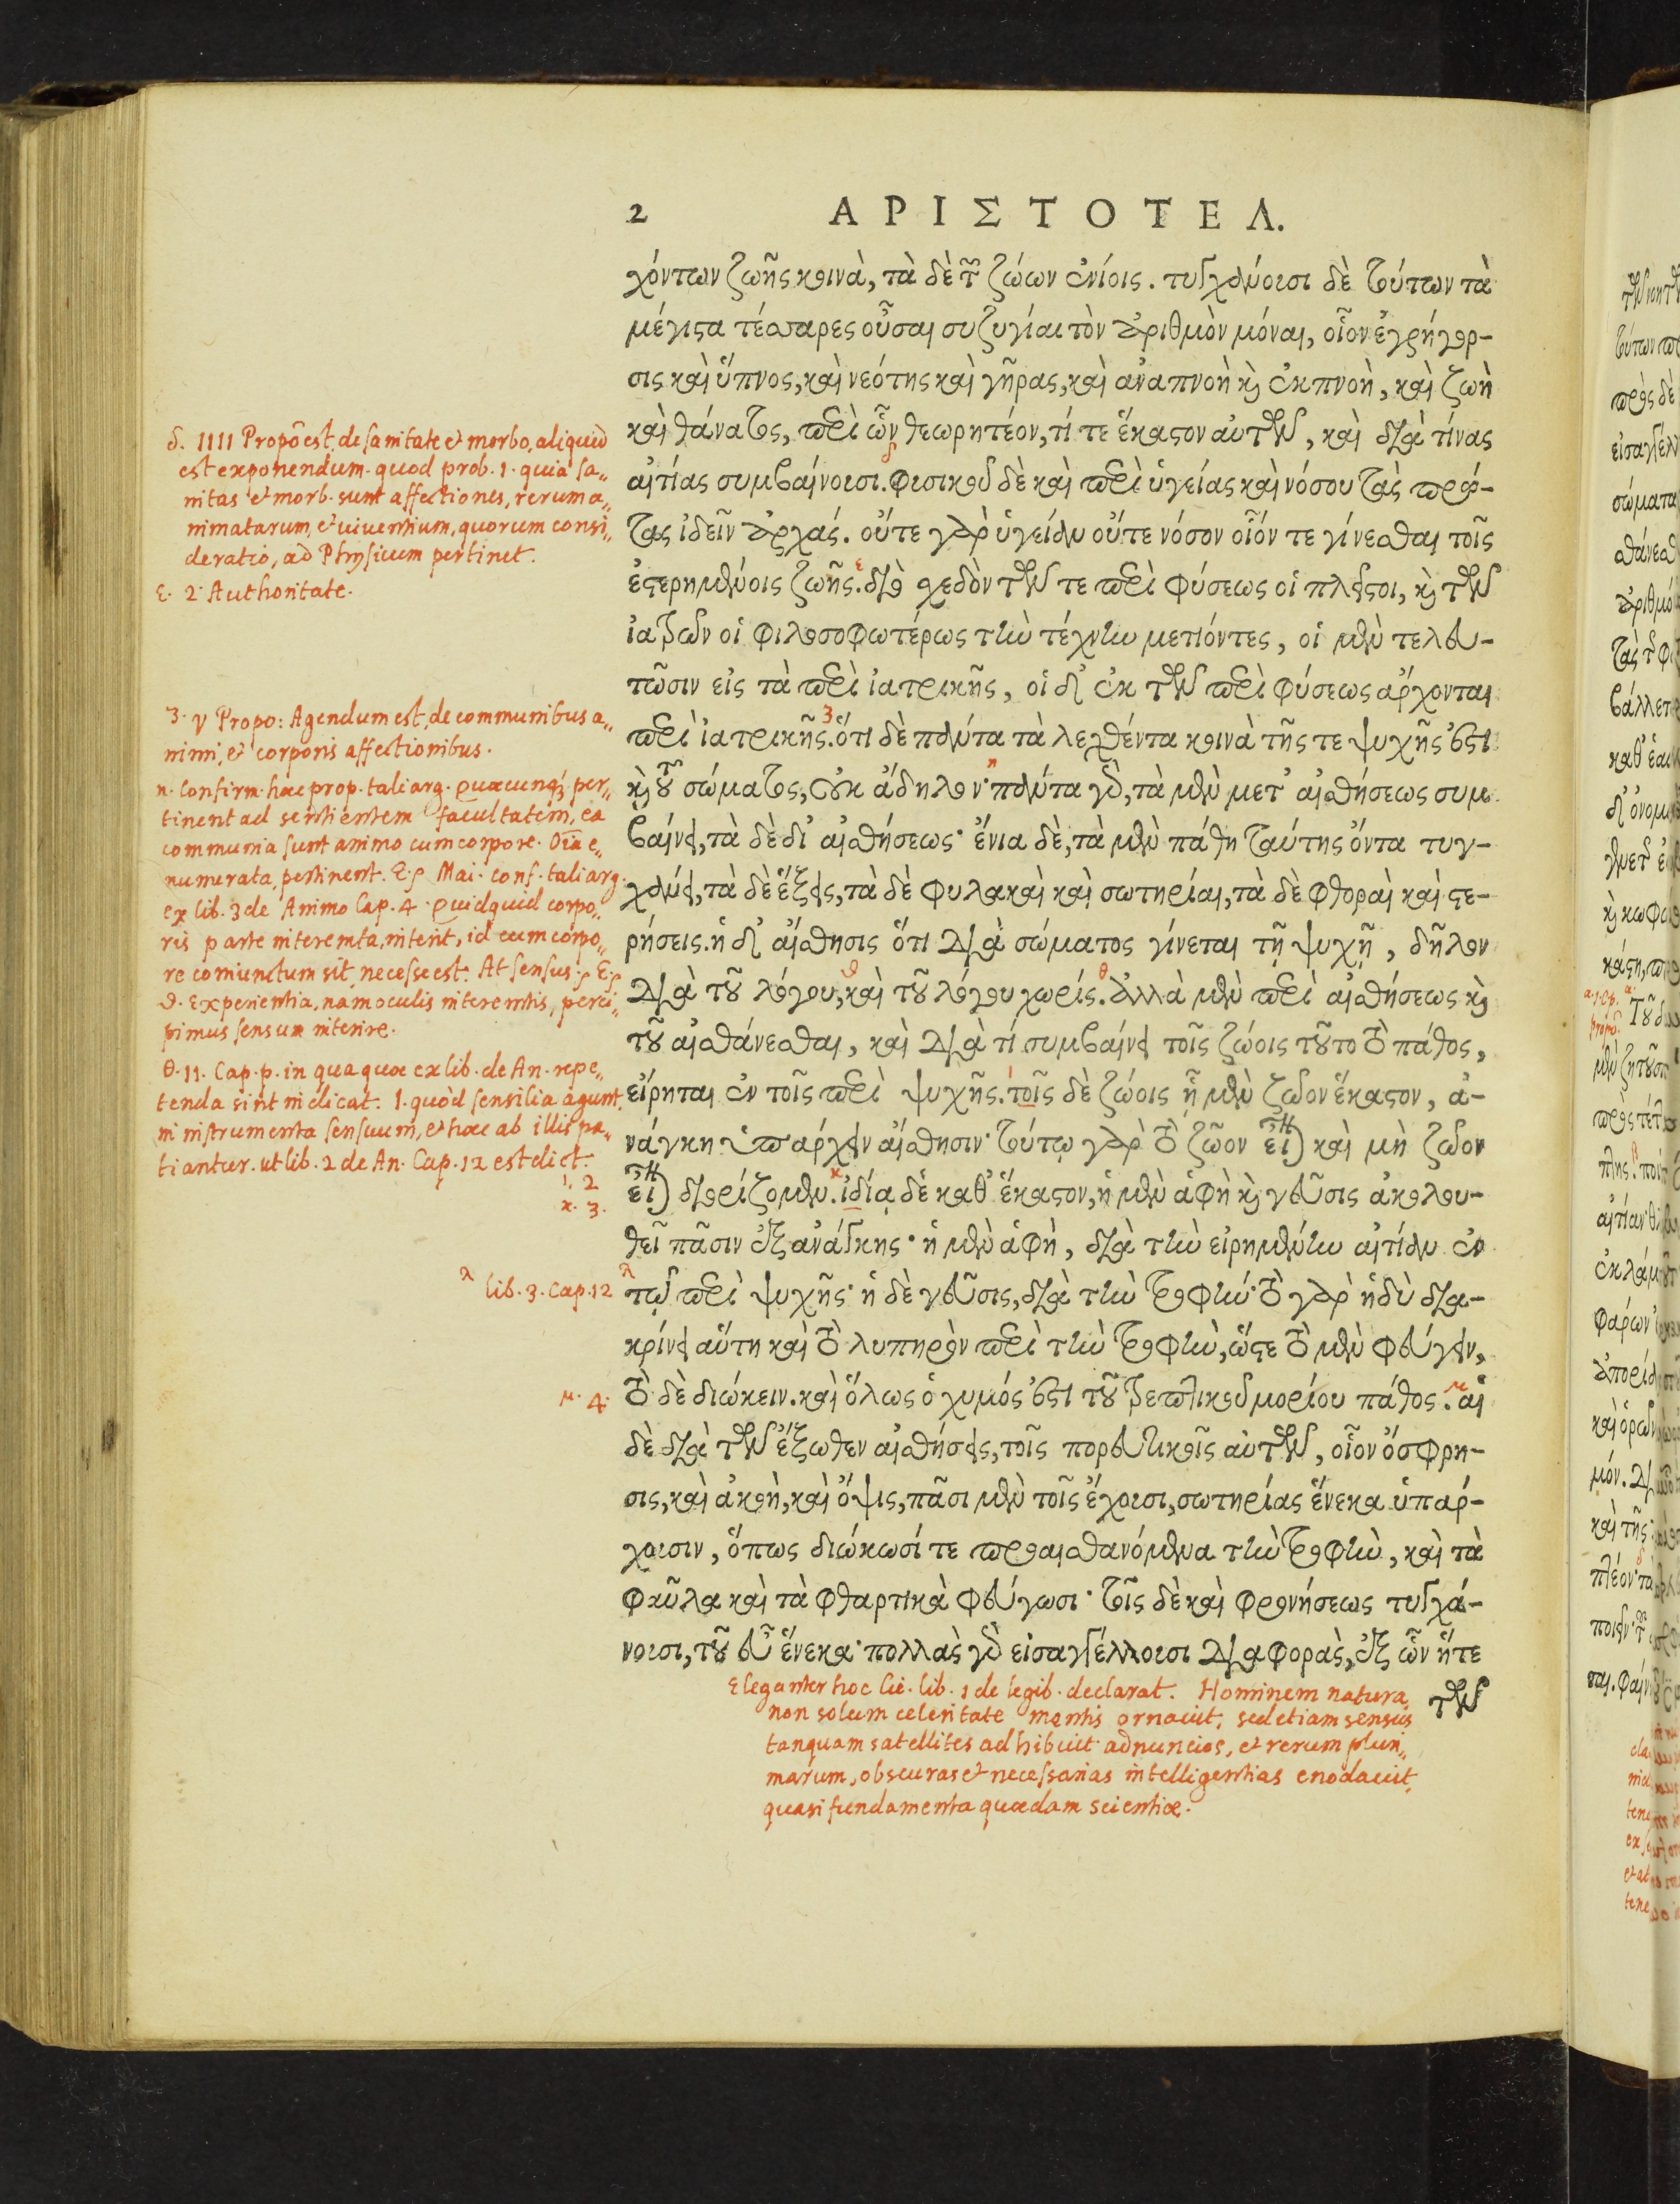 2 ΑΡΙΣΤΟΤΕΛ.
χόντων ζωῆς κοινὰ, τὰ δὲ τῶν ζώων ἐνίοις. τυγχάνουσι δὲ τούτων τὰ
μέγιστα τέσσαρες οὖσαι συζυγίαι τὸν ἀριθμὸν μόναι, οἷον ἐγρήγορ-
σις καὶ ὕπνος, καὶ νεότης καὶ γῆρας, καὶ ἀναπνοὴ καὶ ἐκπνοὴ, καὶ ζωὴ
καὶ θάνατος, περὶ ὧν θεωρητέον, τί τε ἕκαστον αὐτῶν, καὶ διὰ τίνας
αἰτίας συμβαίνουσι. φυσικοῦ δὲ καὶ περὶ ὑγείας καὶ νόσου τὰς πρώ-
τας ἰδεῖν ἀρχάς. οὔτε γὰρ ὑγείαν οὔτε νόσον οἷόν τε γίνεσθαι τοῖς
ἐστερημένοις ζωῆς. διὸ σχεδὸν τῶν τε περὶ φύσεως οἱ πλεῖστοι, καὶ τῶν
ἰατρῶν οἱ φιλοσοφωτέρως τὴν τέχνην μετιόντες, οἱ μὲν τελευ-
τῶσιν εἰς τὰ περὶ ἰατρικῆς, οἱ δ' ἐκ τῶν περὶ φύσεως ἄρχονται
περὶ ἰατρικῆς. ὅτι δὲ πάντα τὰ λεχθέντα κοινὰ τῆς τε ψυχῆς ἐστὶ
καὶ τοῦ σώματος, οὐκ ἄδηλον· πάντα γὰρ, τὰ μὲν μετ' αἰσθήσεως συμ-
βαίνει, τὰ δὲ δι' αἰσθήσεως· ἔνια δὲ, τὰ μὲν πάθη ταύτης ὄντα τυγ-
χάνει, τὰ δὲ ἕξεις, τὰ δὲ φυλακαὶ καὶ σωτηρίαι, τὰ δὲ φθοραὶ καὶ στε-
ρήσεις. ἡ δ' αἴσθησις ὅτι διὰ σώματος γίνεται τῇ ψυχῇ, δῆλον
διὰ τοῦ λόγου, καὶ τοῦ λόγου χωρίς. ἀλλὰ μὲν περὶ αἰσθήσεως καὶ
τοῦ αἰσθάνεσθαι, καὶ διὰ τί συμβαίνει τοῖς ζώοις τοῦτο τὸ πάθος,
εἴρηται ἐν τοῖς περὶ ψυχῆς. τοῖς δὲ ζώοις ᾗ μὲν ζῶον ἕκαστον, ἀ-
νάγκη ὑπάρχειν αἴσθησιν· τούτῳ γὰρ τὸ ζῶον εἶναι καὶ μὴ ζῶον
εἶναι διορίζομεν. ἰδίᾳ δὲ καθ' ἕκαστον, ἡ μὲν ἁφὴ καὶ γεῦσις ἀκολου-
θεῖ πᾶσιν ἐξ ἀνάγκης· ἡ μὲν ἁφὴ, διὰ τὴν εἰρημένην αἰτίαν ἐν
τῷ περὶ ψυχῆς· ἡ δὲ γεῦσις, διὰ τὴν τροφήν· τὸ γὰρ ἡδὺ δια-
κρίνει αὕτη καὶ τὸ λυπηρὸν περὶ τὴν τροφὴν, ὥστε τὸ μὲν φεύγειν,
τὸ δὲ διώκειν. καὶ ὅλως ὁ χυμός ἐστι τοῦ θρεπτικοῦ μορίου πάθος. αἱ
δὲ διὰ τῶν ἔξωθεν αἰσθήσεις, τοῖς πορευτικοῖς αὐτῶν, οἷον ὄσφρη-
σις, καὶ ἀκοὴ, καὶ ὄψις, πᾶσι μὲν τοῖς ἔχουσι, σωτηρίας ἕνεκα ὑπάρ-
χουσιν, ὅπως διώκωσί τε προαισθανόμενα τὴν τροφὴν, καὶ τὰ
φαῦλα καὶ τὰ φθαρτικὰ φεύγωσι· τοῖς δὲ καὶ φρονήσεως τυγχά-
νουσι, τοῦ εὖ ἕνεκα· πολλὰς γὰρ εἰσαγγέλλουσι διαφορὰς, ἐξ ὧν ἥτε
τῶν
δ. IIII Propō est, de sanitate et morbo, aliquid
est exponendum. quod prob. 1. quia sa,,
nitas et morb. sunt affectiones, rerum a,,
nimatarum, et viventium, quorum consi,,
deratio, ad Physicum pertinet.
ε. 2. Authoritate.
3. V Propo: Agendum est, de communibus a,,
nimi, et corporis affectionibus.
n. Confirm. haec prop. tali arg. quaecunq; per,,
tinent ad sentientem facultatem, ea
communia sunt animo cum corpore. Oīa e,,
numerata, pertinent. E. Mai. conf. tali arg.
ex lib. 3 de Animo Cap. 4. Quidquid corpo,,
ris parte interemta, interit, id cum corpo,,
re coniunctum sit, necesse est. At sensus. E.
ϑ. Experientia, nam oculis interemtis, perci,,
pimus sensum interire.
θ. 11. Cap. p. in qua quae ex lib. de An. repe,,
tenda sint indicat. 1. quòd sensilia agunt,
in instrumenta sensuum, et haec ab illis pa,,
tiantur. ut lib. 2 de An. Cap. 12 est dict.
ι. 2
κ. 3.
λ lib. 3. Cap. 12
μ. 4.
Eleganter hoc Cic. lib. 1 de legib. declarat. Hominem natura,
non solum celeritate mentis ornavit, sed etiam sensus
tanquam satellites adhibuit ad nuncios, et rerum pluri,,
marum, obscuras et necessarias intelligentias enodavit,
quasi fundamenta quaedam scientiae.